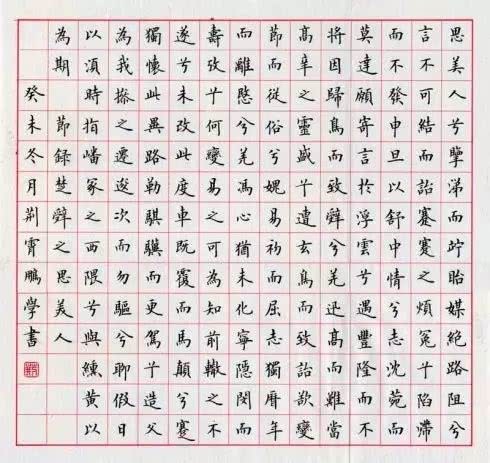 思美人兮擥涕而竚眙媒絕路阻兮
言不可結而詒蹇蹇之煩冤兮陷滯
而不發申旦以舒中情兮志沈菀而
莫達願寄言於浮雲兮遇豐隆而不
將因歸鳥而致辭兮羌迅高而難當
高辛之靈盛兮遭玄鳥而致詒欲變
節而從俗兮媿易初而屈志獨歷年
而離愍兮羌馮心猶未化寧隱閔而
壽攷兮何變易之可為知前轍之不
遂兮未改此度車既覆而馬顛兮蹇
獨懷此異路勒騏驥而更駕兮造父
為我操之遷逡次而勿驅兮聊假日
以須時指嶓冢之西隈兮與纁黃以
為期 節錄楚辭之思美人
癸未冬月荊霄鵬學書